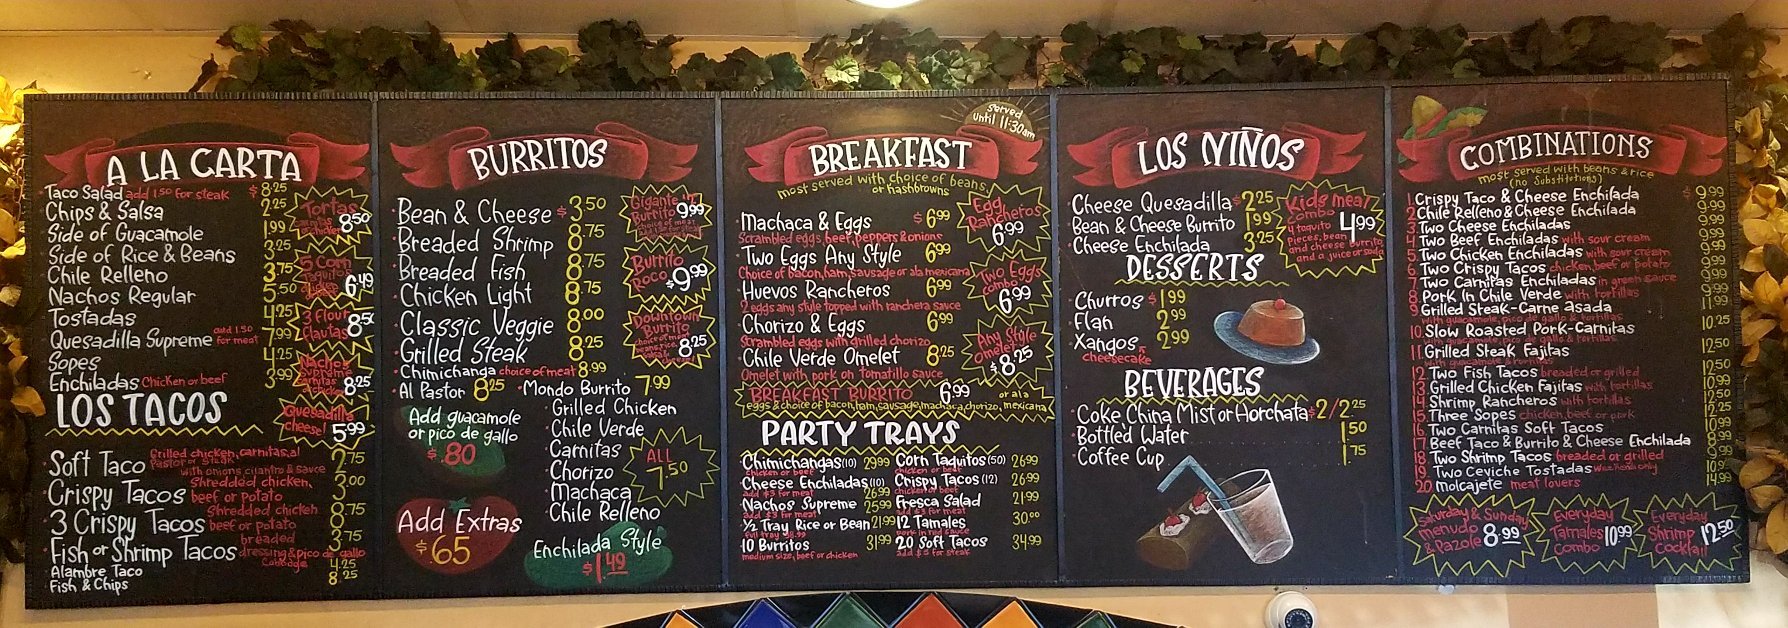 A LA CARTA
Taco Salad add 1.50 for steak $8.25
Chips & Salsa 2.25
Side of Guacamole 1.99
Side of Rice & Beans 3.25
Chile Relleno 3.75
Nachos Regular 5.50
Tostadas 4.25
Quesadilla Supreme add 1.50 for meat 7.99
Sopes 4.25
Enchiladas Chicken or beef 3.99
Tortas
8.50
5 Corn
Taquitos
6.49
3 flour
flautas
8.50
Nachos
Supreme
8.25
Quesadilla
cheese!
5.99
LOS TACOS
Soft Taco Grilled chicken, carnitas, al
Pastor or steak
with onions cilantro & sauce 2.75
Crispy Tacos Shredded chicken,
beef or potato 3.00
3 Crispy Tacos Shredded chicken
beef or potato 8.75
Fish or Shrimp Tacos breaded
dressing & pico de gallo
Cabbage 3.75
Alambre Taco 4.25
Fish & Chips 8.25
BURRITOS
Bean & Cheese $3.50
Breaded Shrimp 8.75
Breaded Fish 8.75
Chicken Light 8.75
Classic Veggie 8.00
Grilled Steak 8.25
Chimichanga choice of meat 8.99
Al Pastor 8.25
Mondo Burrito 7.99
Grilled Chicken
Chile Verde
Carnitas
Chorizo
Machaca
Chile Relleno
ALL
7.50
Gigante
Burrito 9.99
Burrito
Loco $9.99
Downtown
Burrito
8.25
Add guacamole
or pico de gallo
$.80
Add Extras
$.65
Enchilada Style
$1.49
Served
Until 11:30am
BREAKFAST
most served with choice of beans,
or hashbrowns
Machaca & Eggs $6.99
Scrambled eggs, beef, peppers & onions
Two Eggs Any Style 6.99
Choice of bacon, ham, sausage or ala mexicana
Huevos Rancheros 6.99
2 eggs any style topped with ranchera sauce
Chorizo & Eggs 6.99
Scrambled eggs with grilled chorizo
Chile Verde Omelet 8.25
Omelet with pork on tomatillo sauce
Egg
Rancheros
6.99
Two Eggs
combo
6.99
Any Style
Omelet
$8.25
BREAKFAST BURRITO 6.99 or ala
eggs & choice of bacon, ham, sausage, machaca, chorizo, mexicana
PARTY TRAYS
Chimichangas (10) 29.99
chicken or beef
Cheese Enchiladas (10)
add $3 for meat 26.99
Nachos Supreme 25.99
add $3 for meat
1/2 Tray Rice or Bean 21.99
full tray
10 Burritos 31.99
medium size, beef or chicken
Corn Taquitos (50) 26.99
chicken or beef
Crispy Tacos (12) 26.99
chicken or beef
Fresca Salad 21.99
add $3 for meat
12 Tamales 30.00
20 Soft Tacos 34.99
add $5 for steak
LOS NIÑOS
Cheese Quesadilla $2.25
Bean & Cheese Burrito 1.99
Cheese Enchilada 3.25
Kids meal
combo 4.99
4 taquito
pieces, bean
and cheese burrito,
and a juice or soda
DESSERTS
Churros $1.99
Flan 2.99
Xangos 2.99
cheesecake
BEVERAGES
Coke China Mist or Horchata $2/2.25
Bottled Water 1.50
Coffee Cup 1.75
COMBINATIONS
most served with beans & rice
(no Substitutions)
1. Crispy Taco & Cheese Enchilada $9.99
2. Chile Relleno & Cheese Enchilada 9.99
3. Two Cheese Enchiladas 9.99
4. Two Beef Enchiladas with sour cream 9.99
5. Two Chicken Enchiladas with sour cream 9.99
6. Two Crispy Tacos chicken, beef or potato 9.99
7. Two Carnitas Enchiladas in green sauce 9.99
8. Pork in Chile Verde with tortillas 9.99
9. Grilled Steak-Carne Asada 11.99
with guacamole, pico de gallo & tortillas
10. Slow Roasted Pork-Carnitas 10.25
with guacamole, pico de gallo & tortillas
11. Grilled Steak Fajitas 12.50
with guacamole & tortillas
12. Two Fish Tacos breaded or grilled
13. Grilled Chicken Fajitas with tortillas
14. Shrimp Rancheros with tortillas
15. Three Sopes chicken, beef or pork
16. Two Carnitas Soft Tacos
17. Beef Taco & Burrito & Cheese Enchilada
18. Two Shrimp Tacos breaded or grilled
19. Two Ceviche Tostadas
20. Molcajete meat lovers 14.99
Saturday & Sunday
menudo
& Pazole 8.99
Everyday
Tamales
Combo 10.99
Everyday
Shrimp
Cocktail 12.50